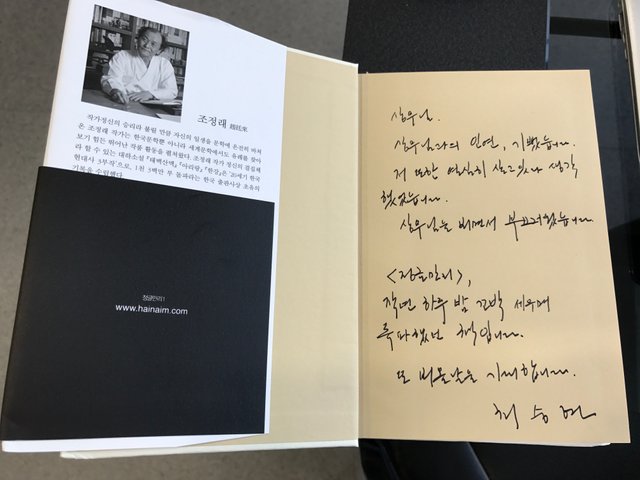 조정래 趙廷來
작가정신의 승리라 불릴 만큼 자신의 일생을 문학에 온전히 바쳐
온 조정래 작가는 한국문학뿐 아니라 세계문학에서도 유례를 찾아
보기 힘든 뛰어난 작품 활동을 펼쳐왔다. 조정래 작가 정신의 결집체
라 할 수 있는 대하소설 『태백산맥』 『아리랑』 『한강』은 '20세기 한국
현대사 3부작'으로, 1천 5백만 부 돌파라는 한국 출판사상 초유의
기록을 수립했다.
정글만리 1
www.hainaim.com
상우님.
상우님과의 인연, 기뻤습니다.
저 또한 열심히 살고있다 생각
했었습니다.
상우님을 뵈면서 부끄러웠습니다.
<정글만리>,
작년 하루 밤 꼬박 세우며
독파했던 책입니다.
또 뵈올날을 기대합니다.